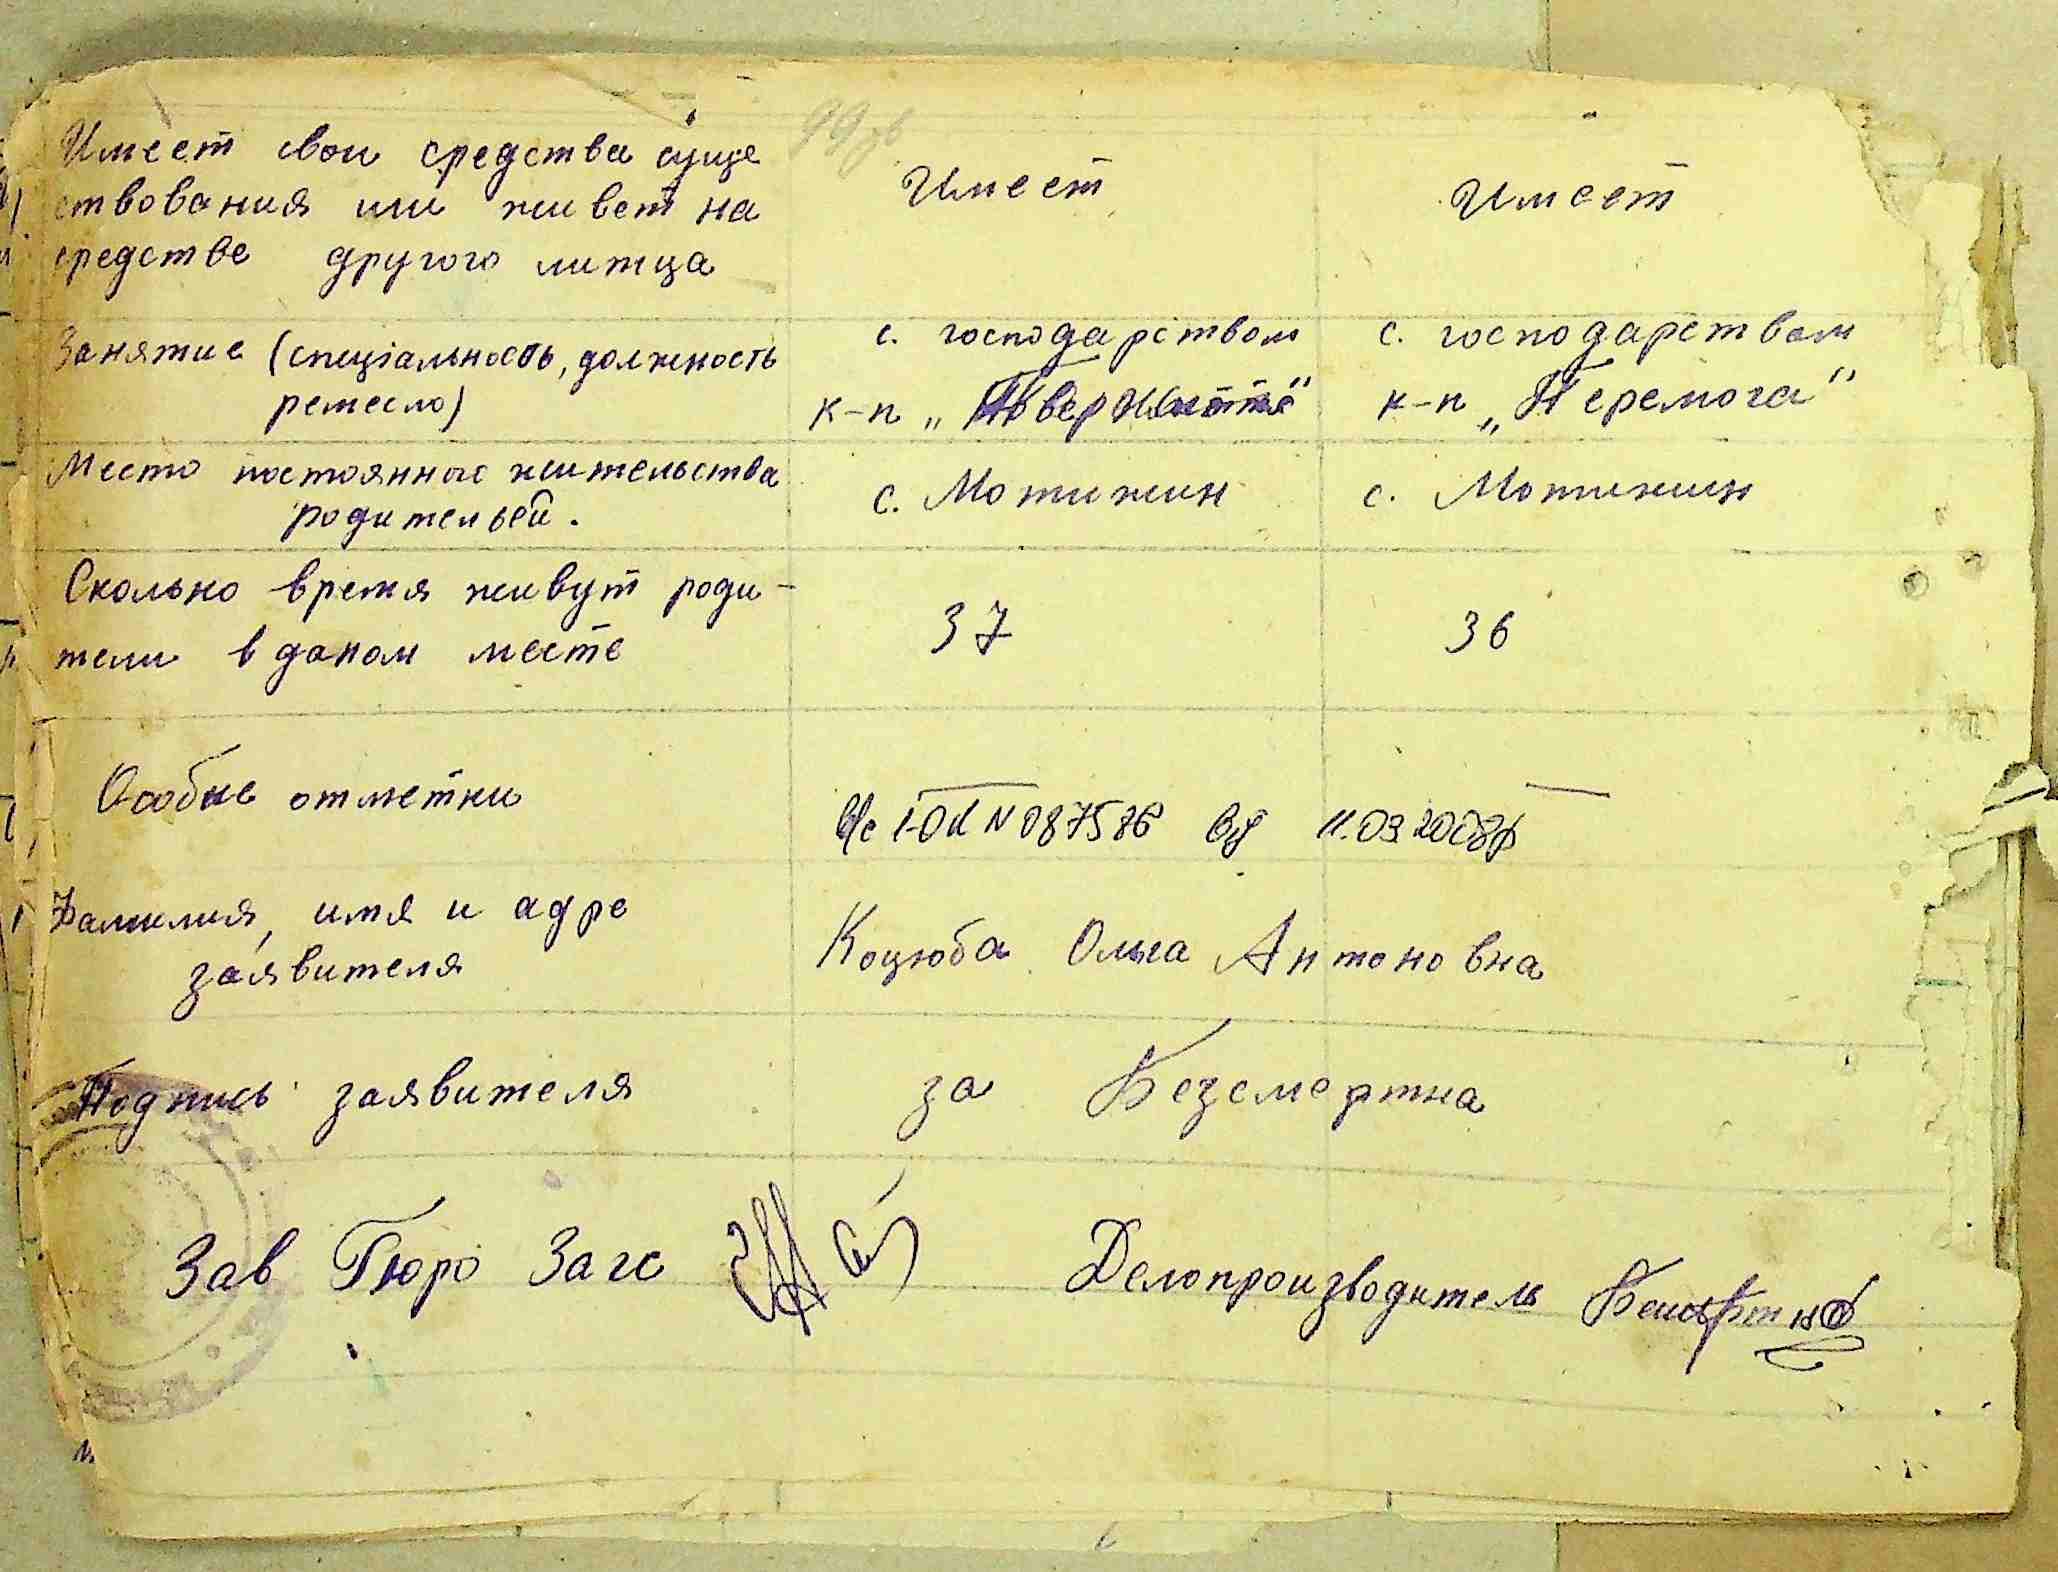 99зв
Имеет свои средства суще
ствования или живет на
средстве другого литца
Имеет
Имеет
Занятие (специальность, должность
ремесло)
с. господарством
к-п „
с. господарством
к-п „Перемога"
Место постоянного жительства
родительей.
с. Мотижин
с. Мотижин
Сколько время живут роди-
тели в даном месте
37
36
Особые отметки
N 087576 від 11.03.2008р
Фамилия, имя и адре
заявителя
Коцюба Ольга Антоновна
Подпись заявителя
за Безсмертна
Зав Бюро Загс
Делопроизводитель